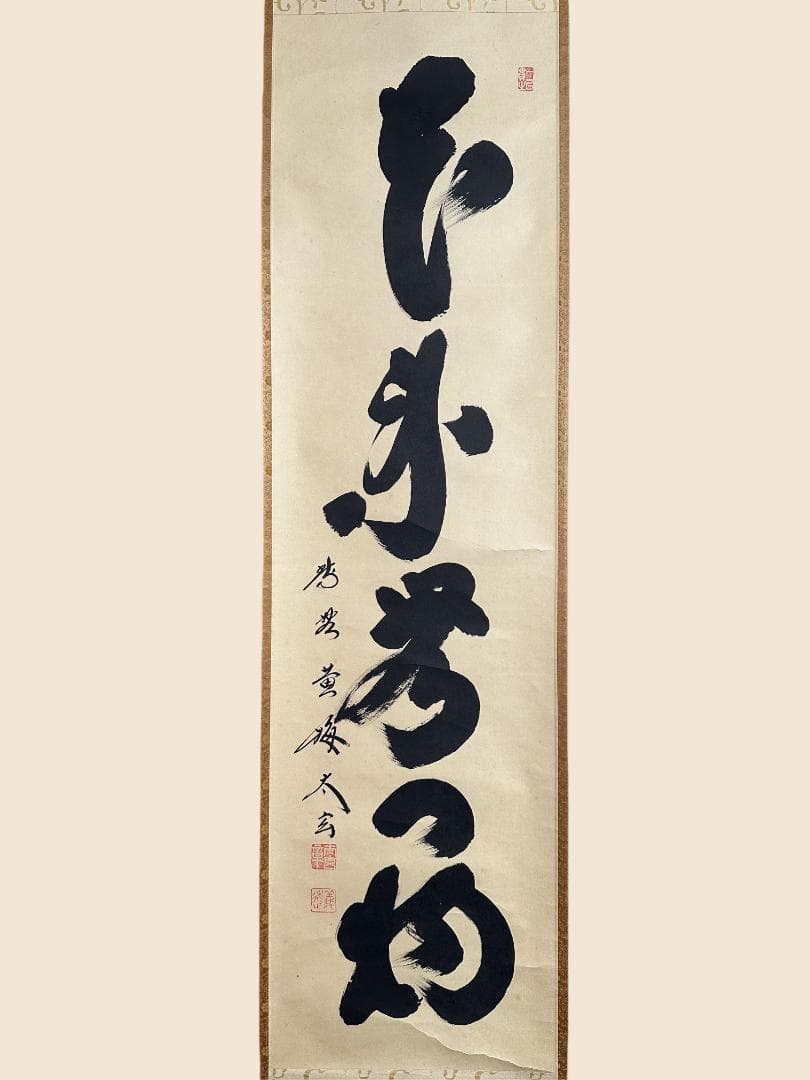 本来無一物
紫野黄梅太玄